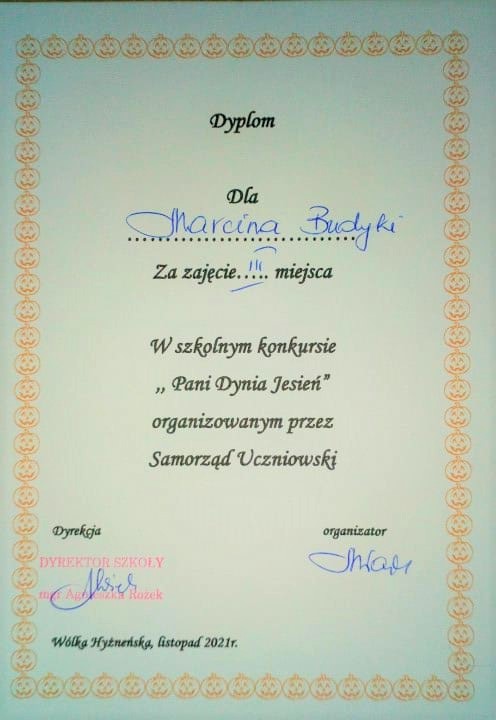 Dyplom
Dla
Marcina Budyki
Za zajęcie..III.. miejsca
W szkolnym konkursie
,, Pani Dynia Jesień”
organizowanym przez
Samorząd Uczniowski
Dyrekcja organizator
DYREKTOR SZKOŁY
mgr Agnieszka Rożek
Wólka Hyżneńska, listopad 2021r.